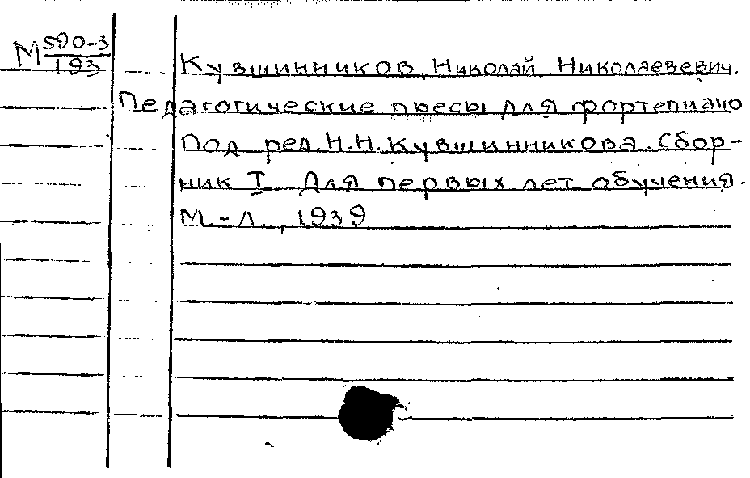 М 590-3/193
Кувшинников, Николай Николаевич.
Педагогические пьесы для фортепиано
Под ред. Н.Н. Кувшинникова. Сбор-
ник I. Для первых лет обучения.
М.-Л., 1939